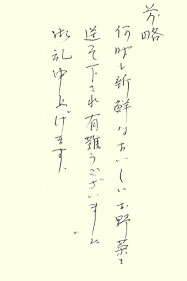 前略
何時も新鮮なおいしいお野菜を
送って下され有難うございました
御礼申上げます